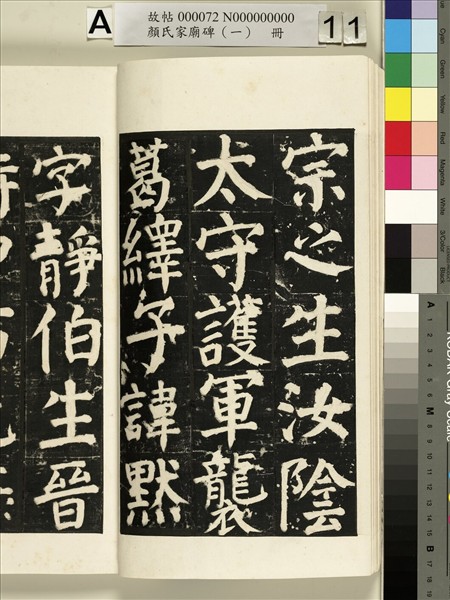 A
故帖 000072 N000000000
顏氏家廟碑（一） 冊
11
宗之生汝陰
太守護軍襲
葛繹子諱默
字靜伯生晉
Cyan
Green
Yellow
Red
Magenta
White
3/Color
Black
A
1
2
3
4
5
6
M
8
9
10
11
12
13
14
15
B
17
18
19